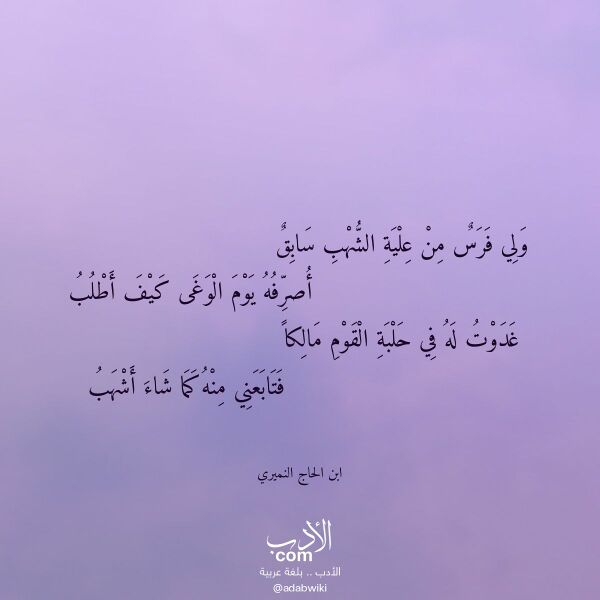 وَلِي فَرَسٌ مِنْ عِلْيَةِ الشُّهْبِ سَابِقٌ
أُصَرِّفُهُ يَوْمَ الْوَغَى كَيْفَ أَطْلُبُ
غَدَوْتُ لَهُ فِي حَلْبَةِ الْقَوْمِ مَالِكاً
فَتَابَعَنِي مِنْهُ كَمَا شَاءَ أَشْهَبُ
ابن الحاج النميري
الأدب
.com
الأدب .. بلغة عربية
@adabwiki